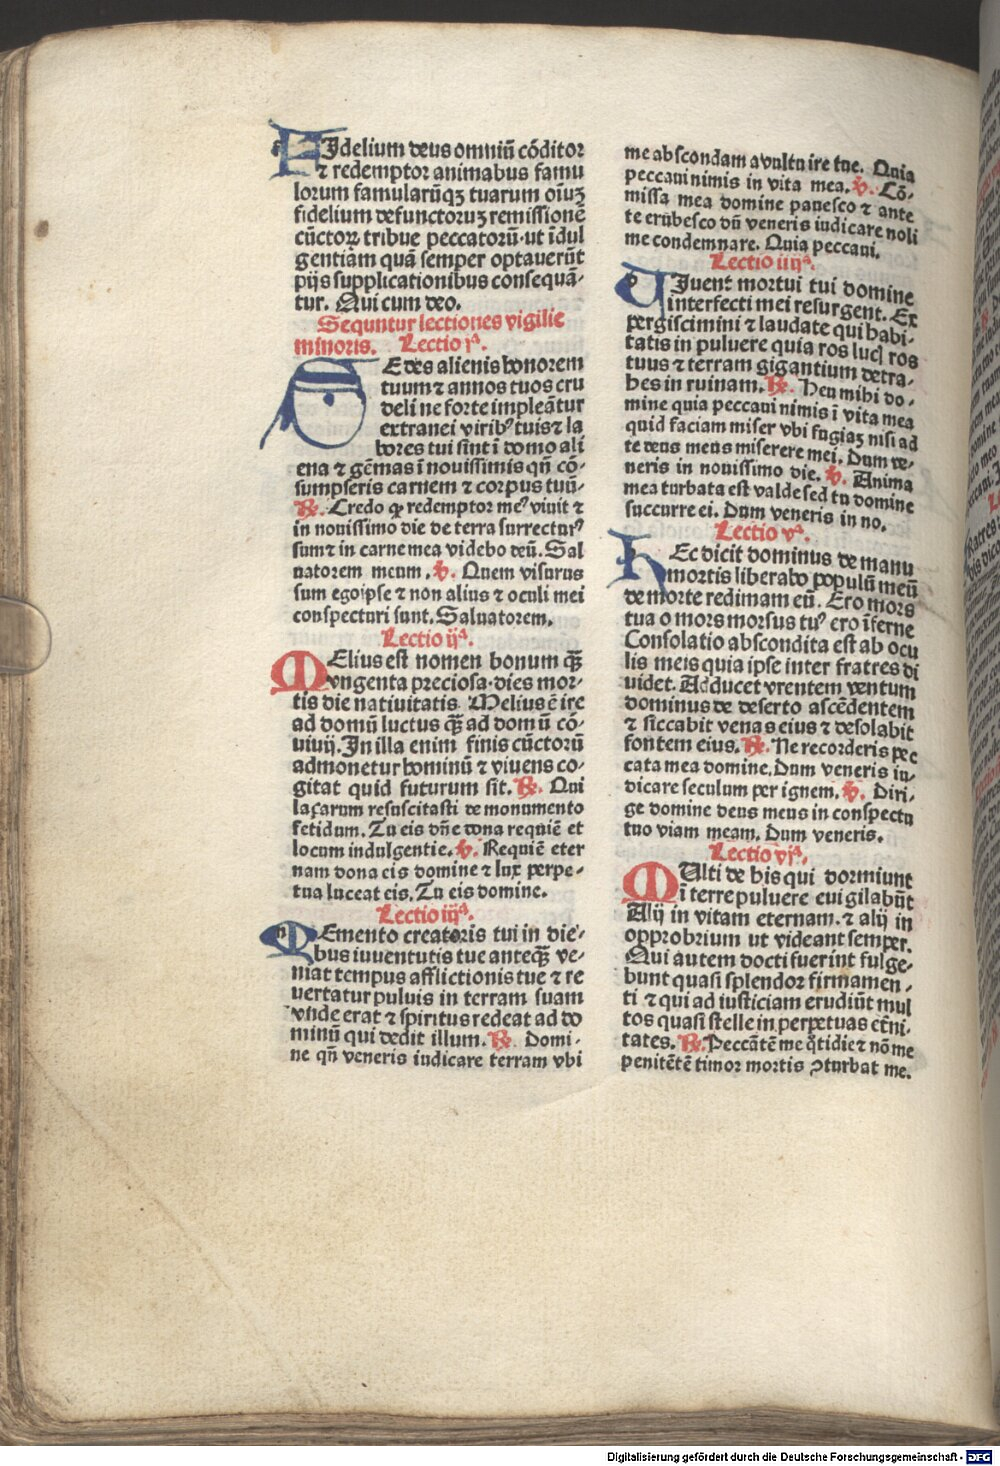 FJdelium deus omniū cōditor
⁊ redemptor animabus famu
lorum famularūqꝫ tuarum oīuꝫ
fidelium defunctoruꝫ remissionē
cūctoꝝ tribue peccatorū·ut īdul
gentiam quā semper optauerūt
pijs supplicationibus consequā⸗
tur. Qui cum deo.
Sequntur lectiones vigilie
minoris. Lectio jᵃ.
NE des alienis honorem
tuum ⁊ annos tuos cru
deli ne forte impleātur
extranei viribꝰ tuis ⁊ la
bores tui sint ī domo ali
ena ⁊ gēmas ī nouissimis qn̄ cō⸗
sumpseris carnem ⁊ corpus tuū.
℟. Credo ꝙ redemptor meꝰ viuit ⁊
in nouissimo die de terra surrecturꝰ
sum ⁊ in carne mea videbo deū. Sal
uatorem meum. ℣. Quem visurus
sum ego ipse ⁊ non alius ⁊ oculi mei
conspecturi sunt. Saluatorem.
Lectio ijᵃ.
MElius est nomen bonum qꝫ̄
vngenta preciosa·dies mor⸗
tis die natiuitatis. Melius ē ire
ad domū luctus qꝫ̄ ad domū cō⸗
uiuij. In illa enim finis cūctorū
admonetur hominū ⁊ viuens co⸗
gitat quid futurum sit. ℟. Qui
laçarum resuscitasti de monumento
fetidum. Tu eis dn̄e dona requiē et
locum indulgentie. ℣. Requiē eter
nam dona eis domine ⁊ lux perpe⸗
tua luceat eis. Tu eis domine.
Lectio iijᵃ.
MEmento creatoris tui in die⸗
bus iuuentutis tue anteqꝫ̄ ve⸗
niat tempus afflictionis tue ⁊ re
uertatur puluis in terram suam
vnde erat ⁊ spiritus redeat ad do
minū qui dedit illum. ℟. Domi⸗
ne qn̄ veneris iudicare terram vbi
me abscondam a vultu ire tue. Quia
peccaui nimis in vita mea. ℣. Cō⸗
missa mea domine pauesco ⁊ ante
te erubesco dū veneris iudicare noli
me condemnare. Quia peccaui.
Lectio iiijᵃ.
VJuent mortui tui domine
interfecti mei resurgent. Ex
pergiscimini ⁊ laudate qui habi⸗
tatis in puluere quia ros lucꝭ ros
tuus ⁊ terram gigantium detra⸗
hes in ruinam. ℟. Heu mihi do⸗
mine quia peccaui nimis ī vita mea
quid faciam miser vbi fugiaꝫ nisi ad
te deus meus miserere mei. Dum ve⸗
neris in nouissimo die. ℣. Anima
mea turbata est valde sed tu domine
succurre ei. Dum veneris in no.
Lectio vᵃ.
HEc dicit dominus de manu
mortis liberabo populū meū
de morte redimam eū. Ero mors
tua o mors morsus tuꝰ ero īferne
Consolatio abscondita est ab ocu
lis meis quia ipse inter fratres di
uidet. Adducet vrentem ventum
dominus de deserto ascēdentem
⁊ siccabit venas eius ⁊ desolabit
fontem eius. ℟. Ne recorderis pec
cata mea domine. Dum veneris iu⸗
dicare seculum per ignem. ℣. Diri⸗
ge domine deus meus in conspectu
tuo viam meam. Dum veneris.
Lectio vjᵃ.
MUlti de his qui dormiunt
ī terre puluere euigilabūt
Alij in vitam eternam. ⁊ alij in
opprobrium ut videant semper.
Qui autem docti fuerint fulge⸗
bunt quasi splendor firmamen⸗
ti ⁊ qui ad iusticiam erudiūt mul
tos quasi stelle in perpetuas et̄ni⸗
tates. ℟. Peccātē me q̄tidie ⁊ nō me
penitētē timor mortis ꝯturbat me.
Digitalisierung gefördert durch die Deutsche Forschungsgemeinschaft - DFG